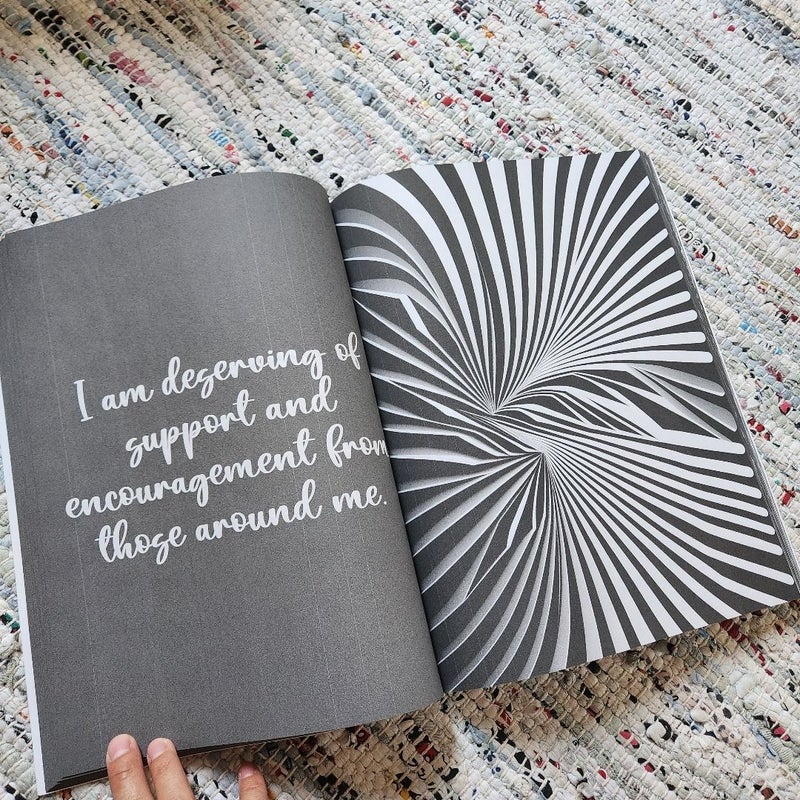 I am deserving of
support and
encouragement from
those around me.